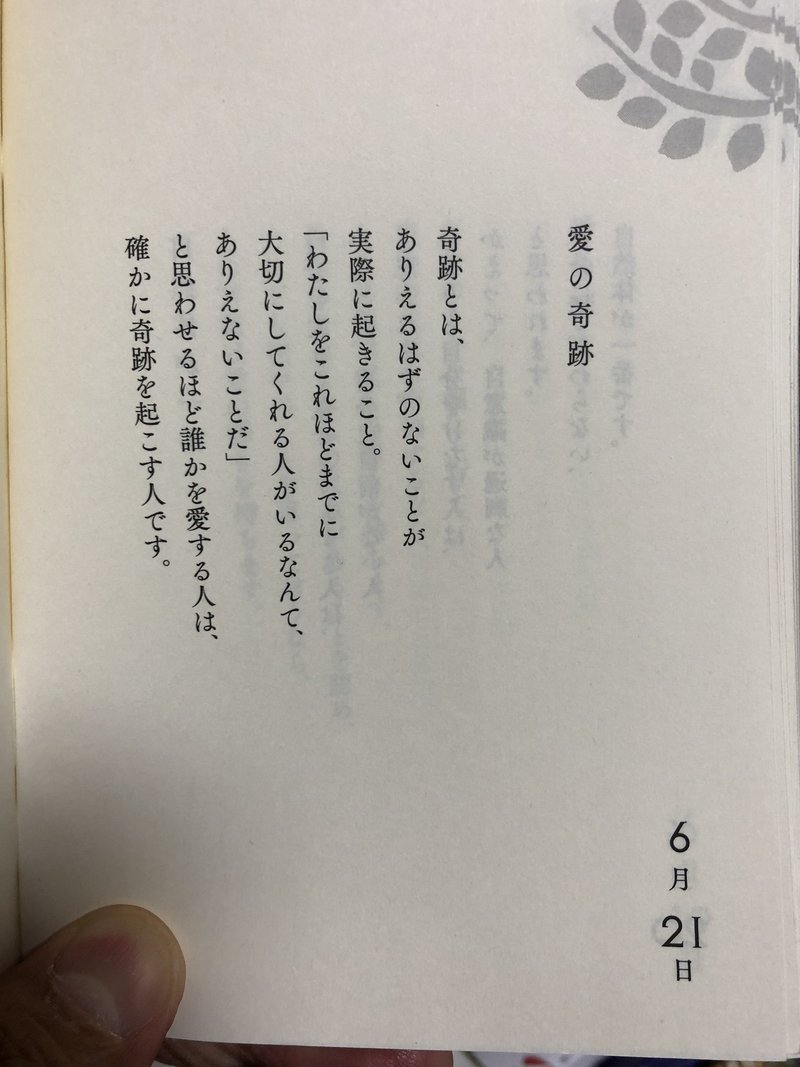 愛の奇跡
奇跡とは、
ありえるはずのないことが
実際に起きること。
「わたしをこれほどまでに
大切にしてくれる人がいるなんて、
ありえないことだ」
と思わせるほど誰かを愛する人は、
確かに奇跡を起こす人です。
6月21日